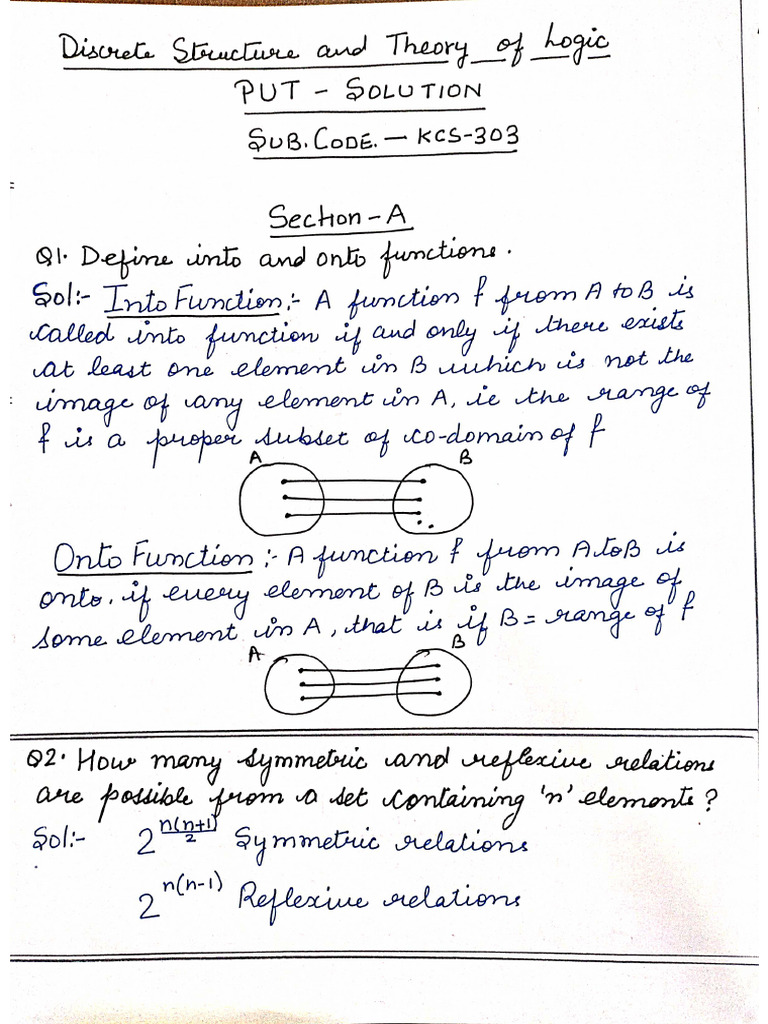 Discrete Structure and Theory of Logic
PUT - SOLUTION
SUB. CODE. - KCS-303
Section-A
Q1. Define into and onto functions.
Sol:- Into Function:- A function f from A to B is
called into function if and only if there exists
at least one element in B which is not the
image of any element in A, ie the range of
f is a proper subset of co-domain of f
A B
Onto Function:- A function f from A to B is
onto, if every element of B is the image of
some element in A, that is if B = range of f
A B
Q2. How many symmetric and reflexive relations
are possible from a set containing 'n' elements?
Sol:- 2^(n(n+1)/2) Symmetric relations
2^n(n-1) Reflexive relations